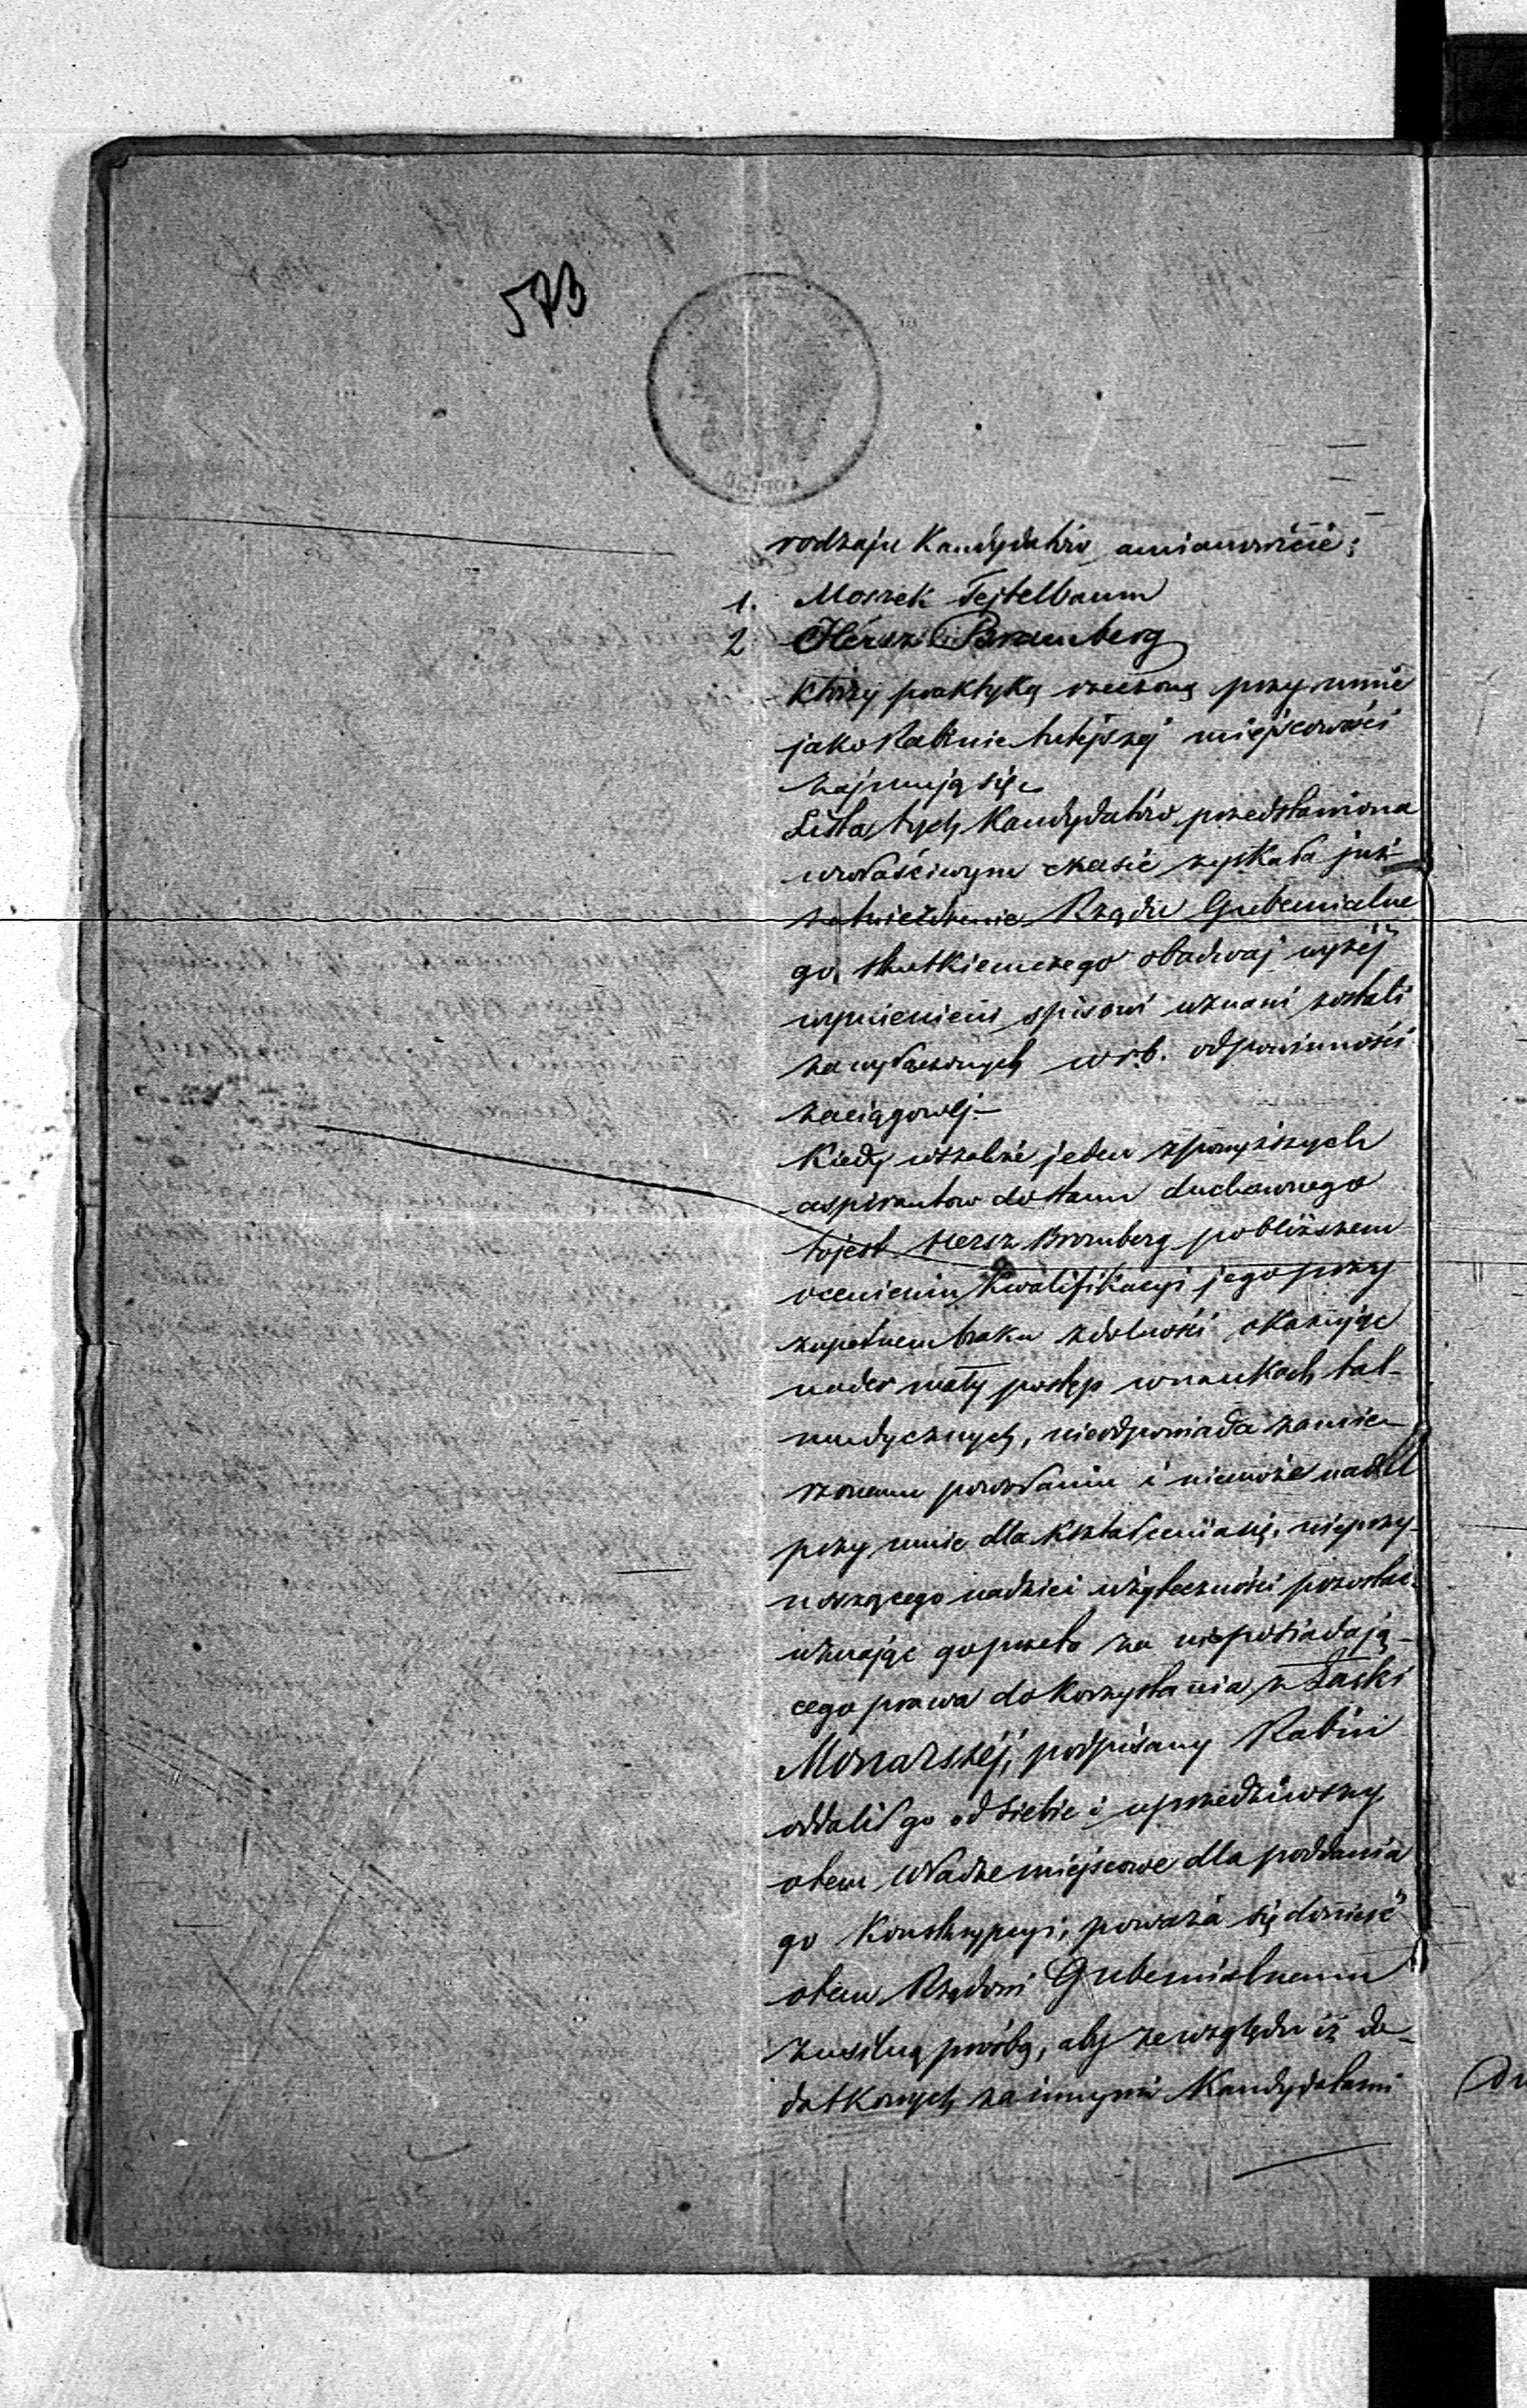 573
rodzaju Kandydatów amianowicie:
1. Moszek Tejtelbaum
2 Hersz Bramberg
którzy praktyką rzeczoną przy mnie
jako Rabinie tutejszej miejscowości
zajmują się
Lista tych Kandydatów przedstawiona
wwłaściwym czasie zyskała już
zatwierdzenie Rządu Gubernialne
go, skutkiem czego obadwaj wyżej
wymienieni spisowi uznani zostali
za wyłączonych w r.b. od powinności
zaciągowej.—
Kiedy wszakże jeden zpowyższych
aspirantow do stanu duchownego
tojest Hersz Bromberg po bliższem
ocenieniu kwalifikacyi jego przy
zupełnem braku zdolności okazując
nader mały postęp wnaukach tal-
mudycznych, nieodpowiada zamie-
rzonemu powołaniu i niemoże nadal
przy mnie dla kształcenia się, nieprzy-
noszącego nadziei użyteczności pozostać
uznając go przeto za nieposiadają-
cego prawa do korzystania z Łaski
Monarszej, podpisany Rabin
oddalił go od siebie i uprzedziwszy
otem Władze miejscowe dla poddania
go Konskrypcyi, poważa się donieść
otem Rządowi Gubernialnemu
zusilną prośbą, aby ze względu iż do-
datkowych za innymi Kandydatami